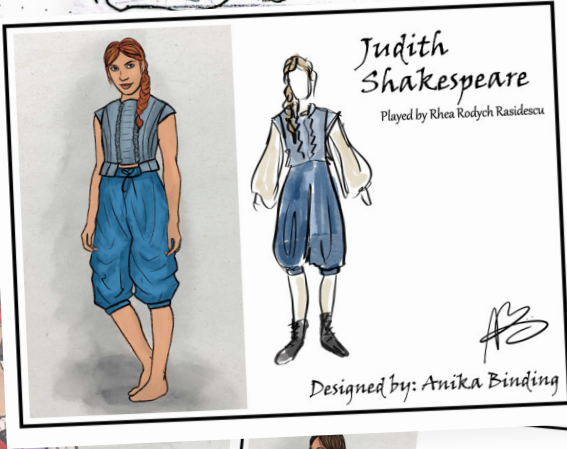 Judith
Shakespeare
Played by Rhea Rodych Rasidescu
Designed by: Anika Binding